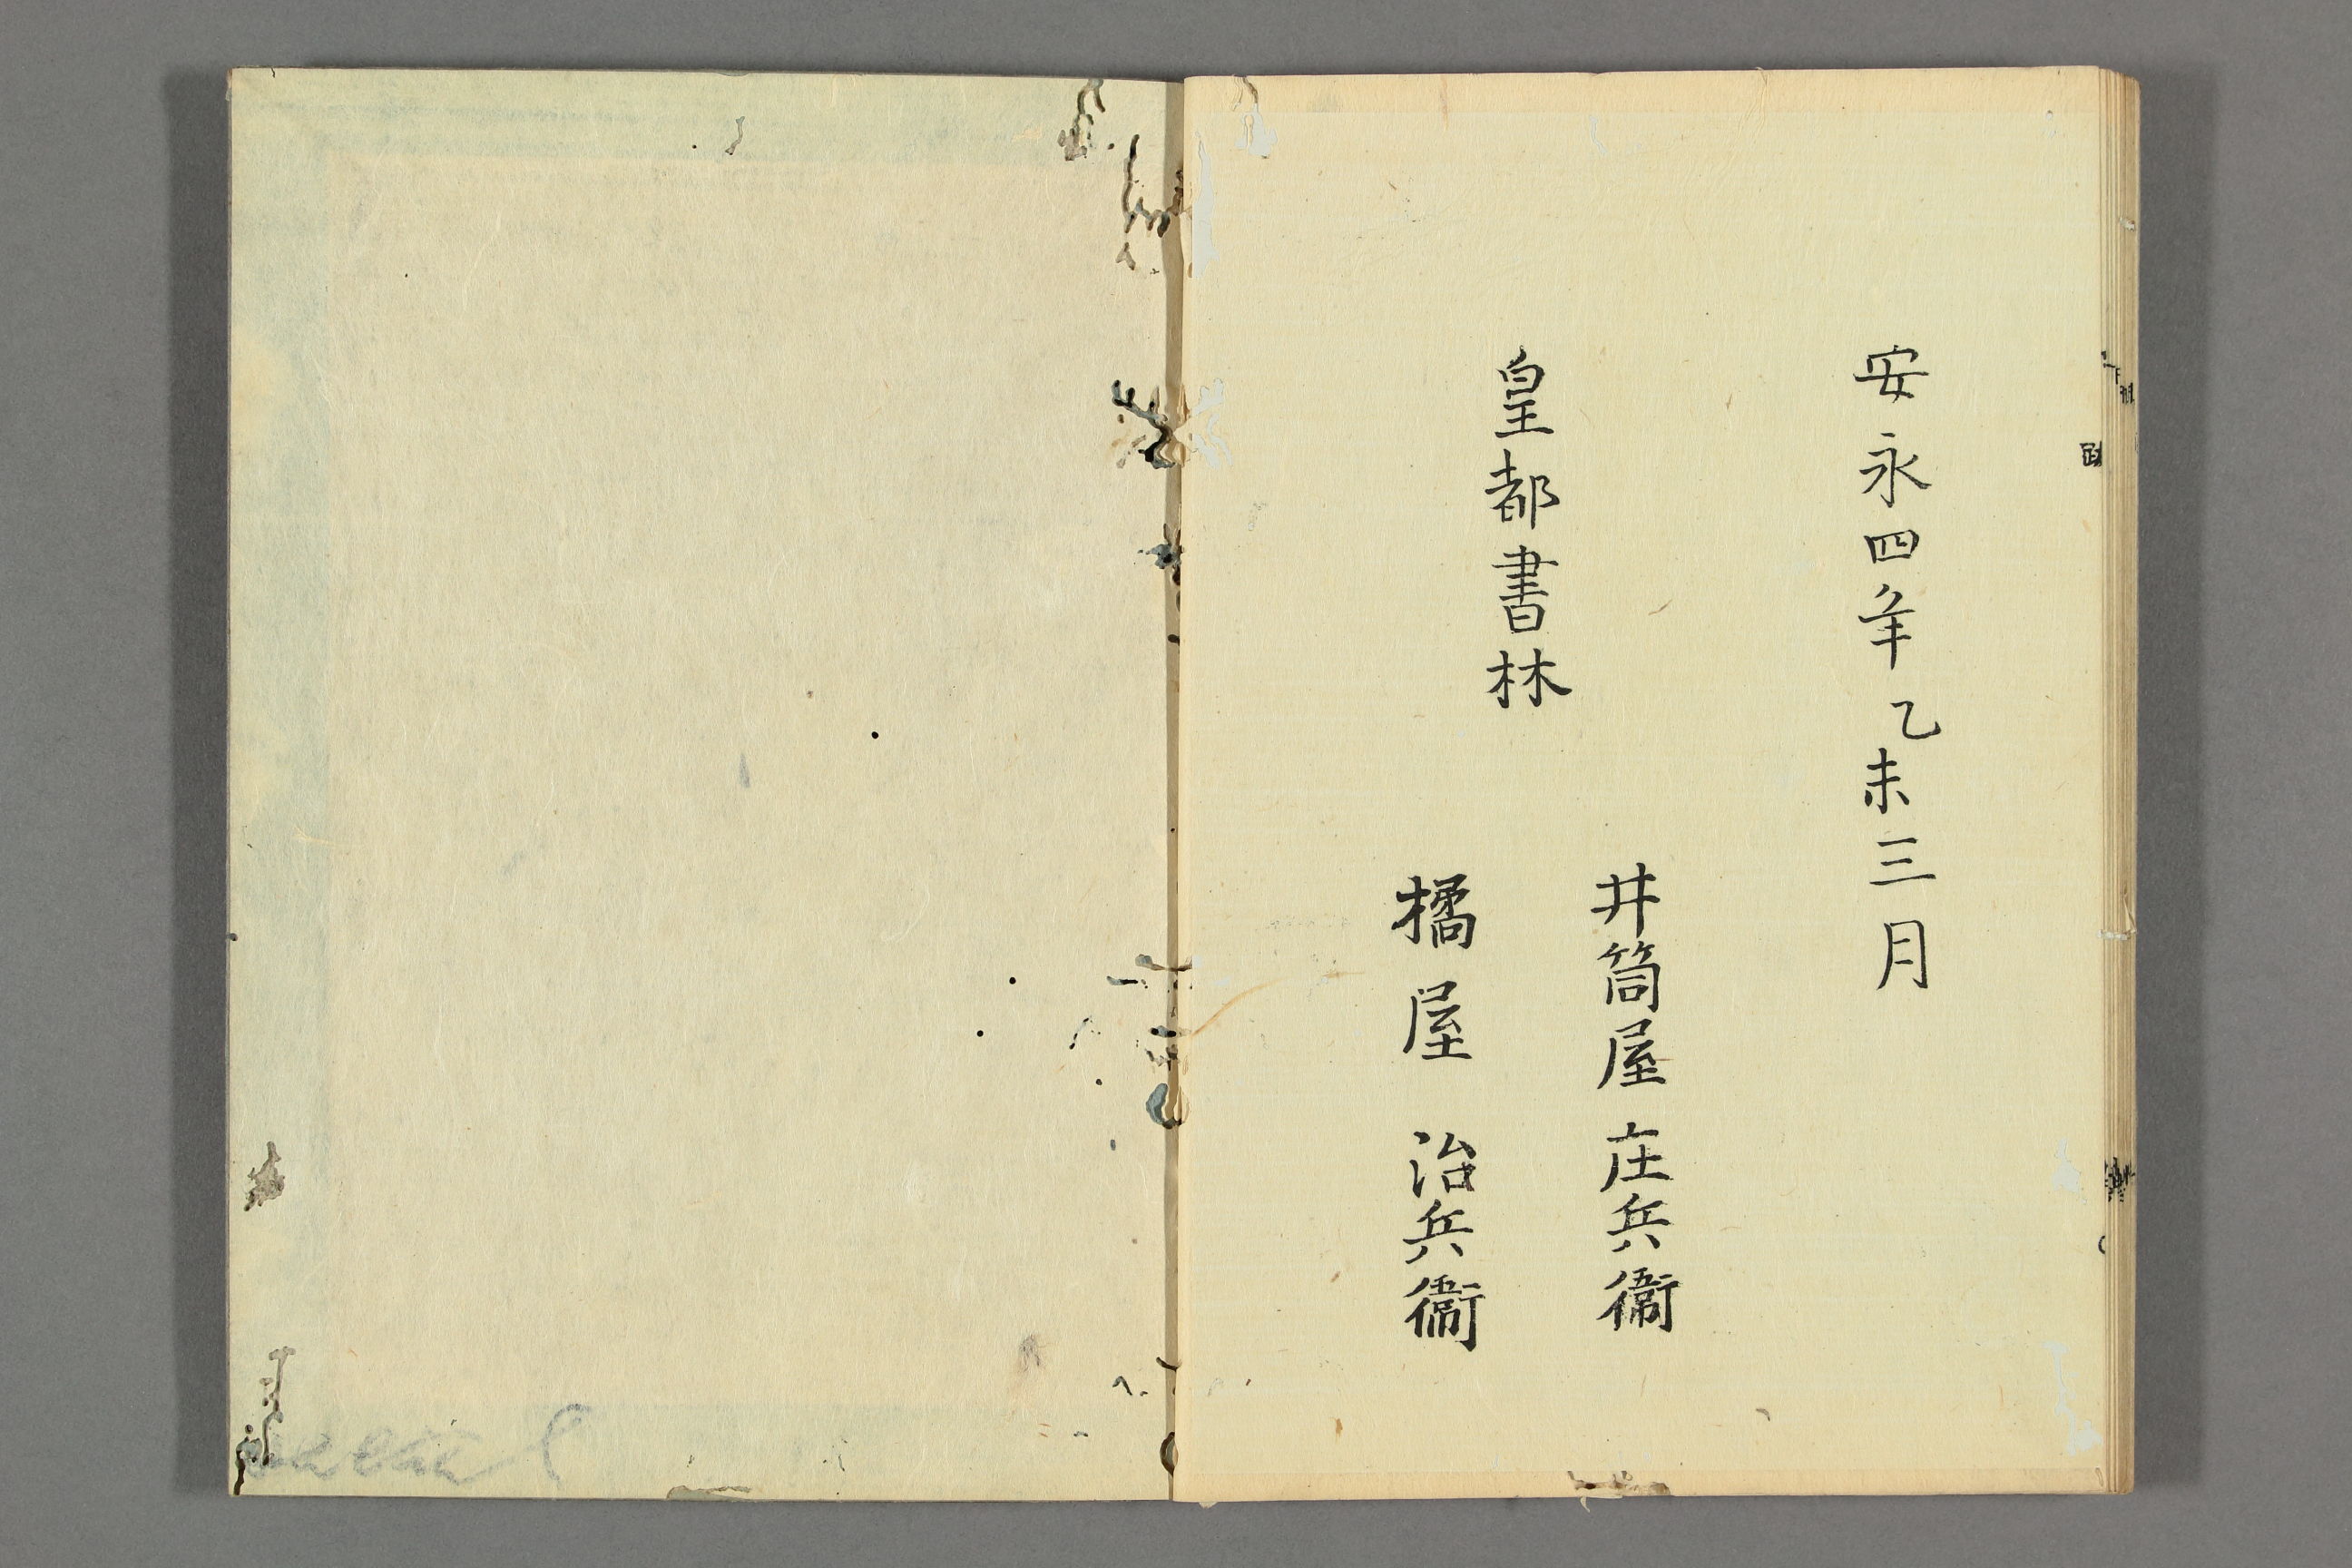 安永四年乙未三月
皇都書林
井筒屋庄兵衞
橘屋治兵衞